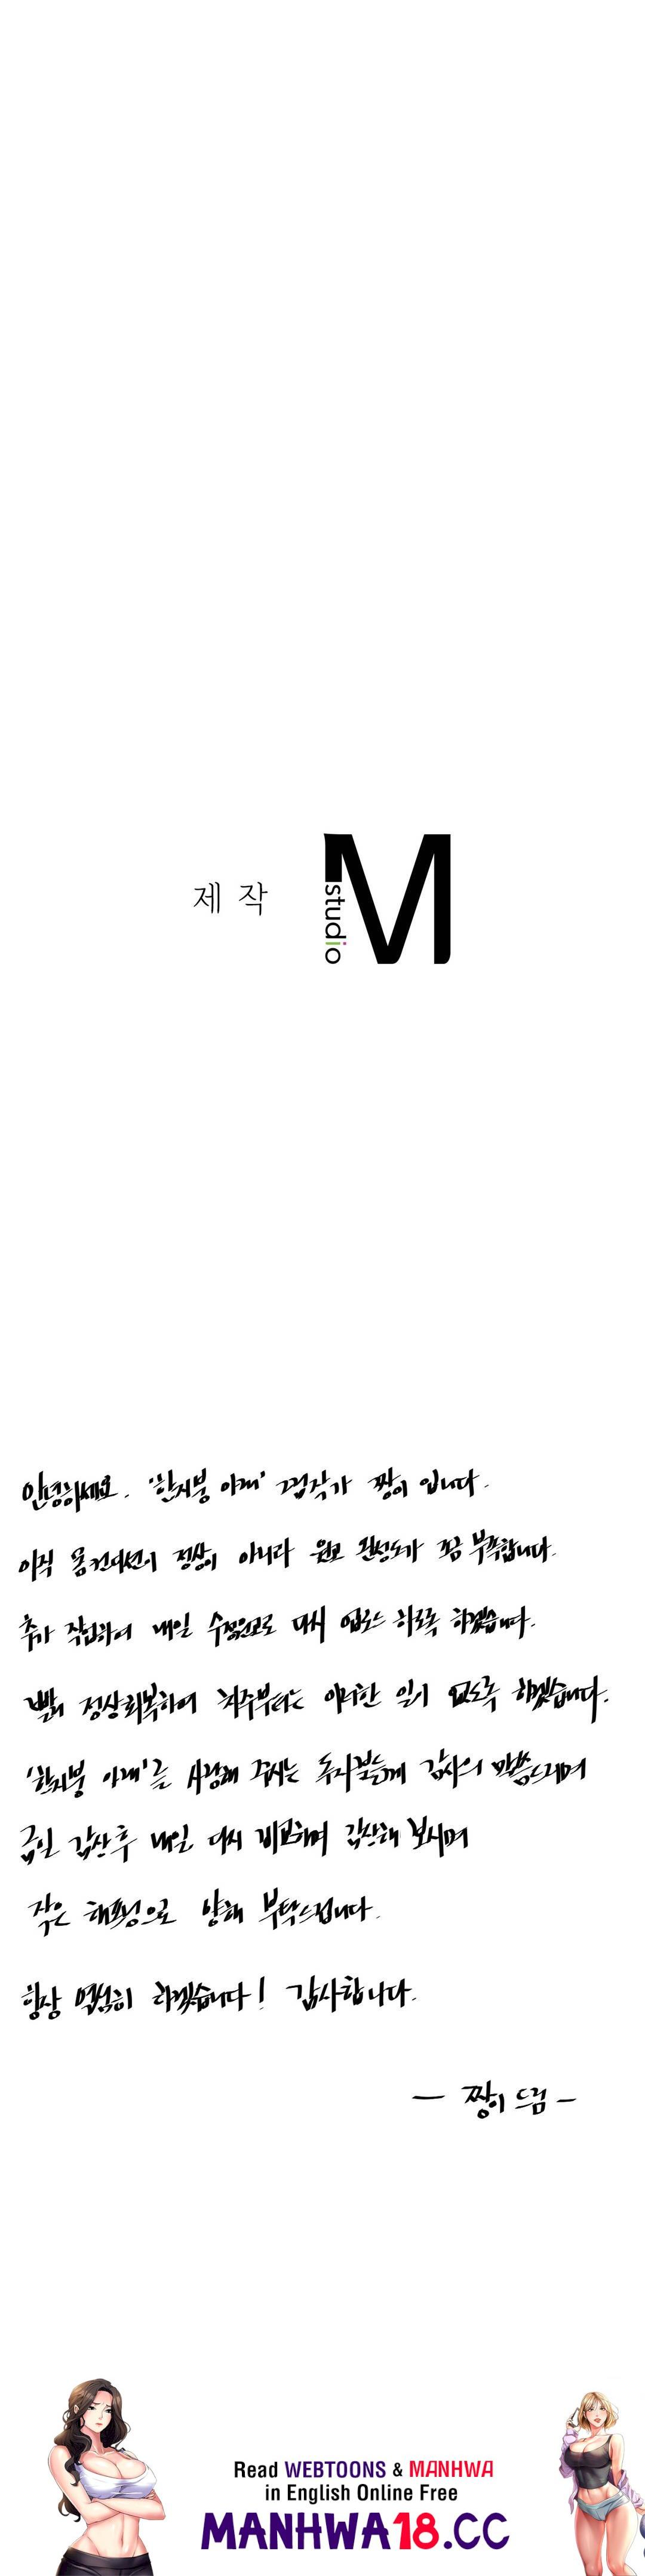 제 작
M
studio
안녕하세요. '한지붕 아래' 그림작가 짱이 입니다.
아직 몸 컨디션이 정상이 아니라 원고 완성도가 조금 부족합니다.
추가 작업하여 내일 수정원고로 다시 업로드 하도록 하겠습니다.
빨리 정상회복하여 차주부터는 이러한 일이 없도록 하겠습니다.
'한지붕 아래'를 사랑해 주시는 독자분들께 감사의 말씀드리며
금일 감상 후 내일 다시 비교하며 감상해 보시며
작은 해프닝으로 양해 부탁드립니다.
항상 열심히 하겠습니다! 감사합니다.
— 짱이 드림 —
Read WEBTOONS & MANHWA
in English Online Free
MANHWA18.CC